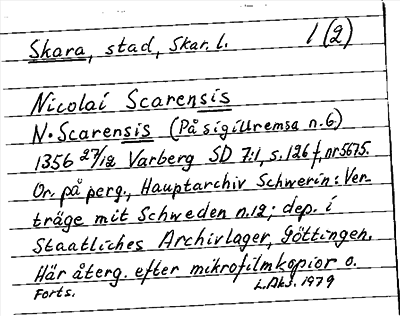 Skara, stad, Skar. l. 1(2)
Nicolai Scarensis
N. Scarensis (På sigillremsa n. 6)
1356 27/12 Varberg SD 7:1, s. 126 f, nr 5675.
Or. på perg., Hauptarchiv Schwerin: Ver-
träge mit Schweden n. 12; dep. i
Staatliches Archivlager, Göttingen.
Här återg. efter mikrofilmkopior o.
Forts. L.Aks. 1979